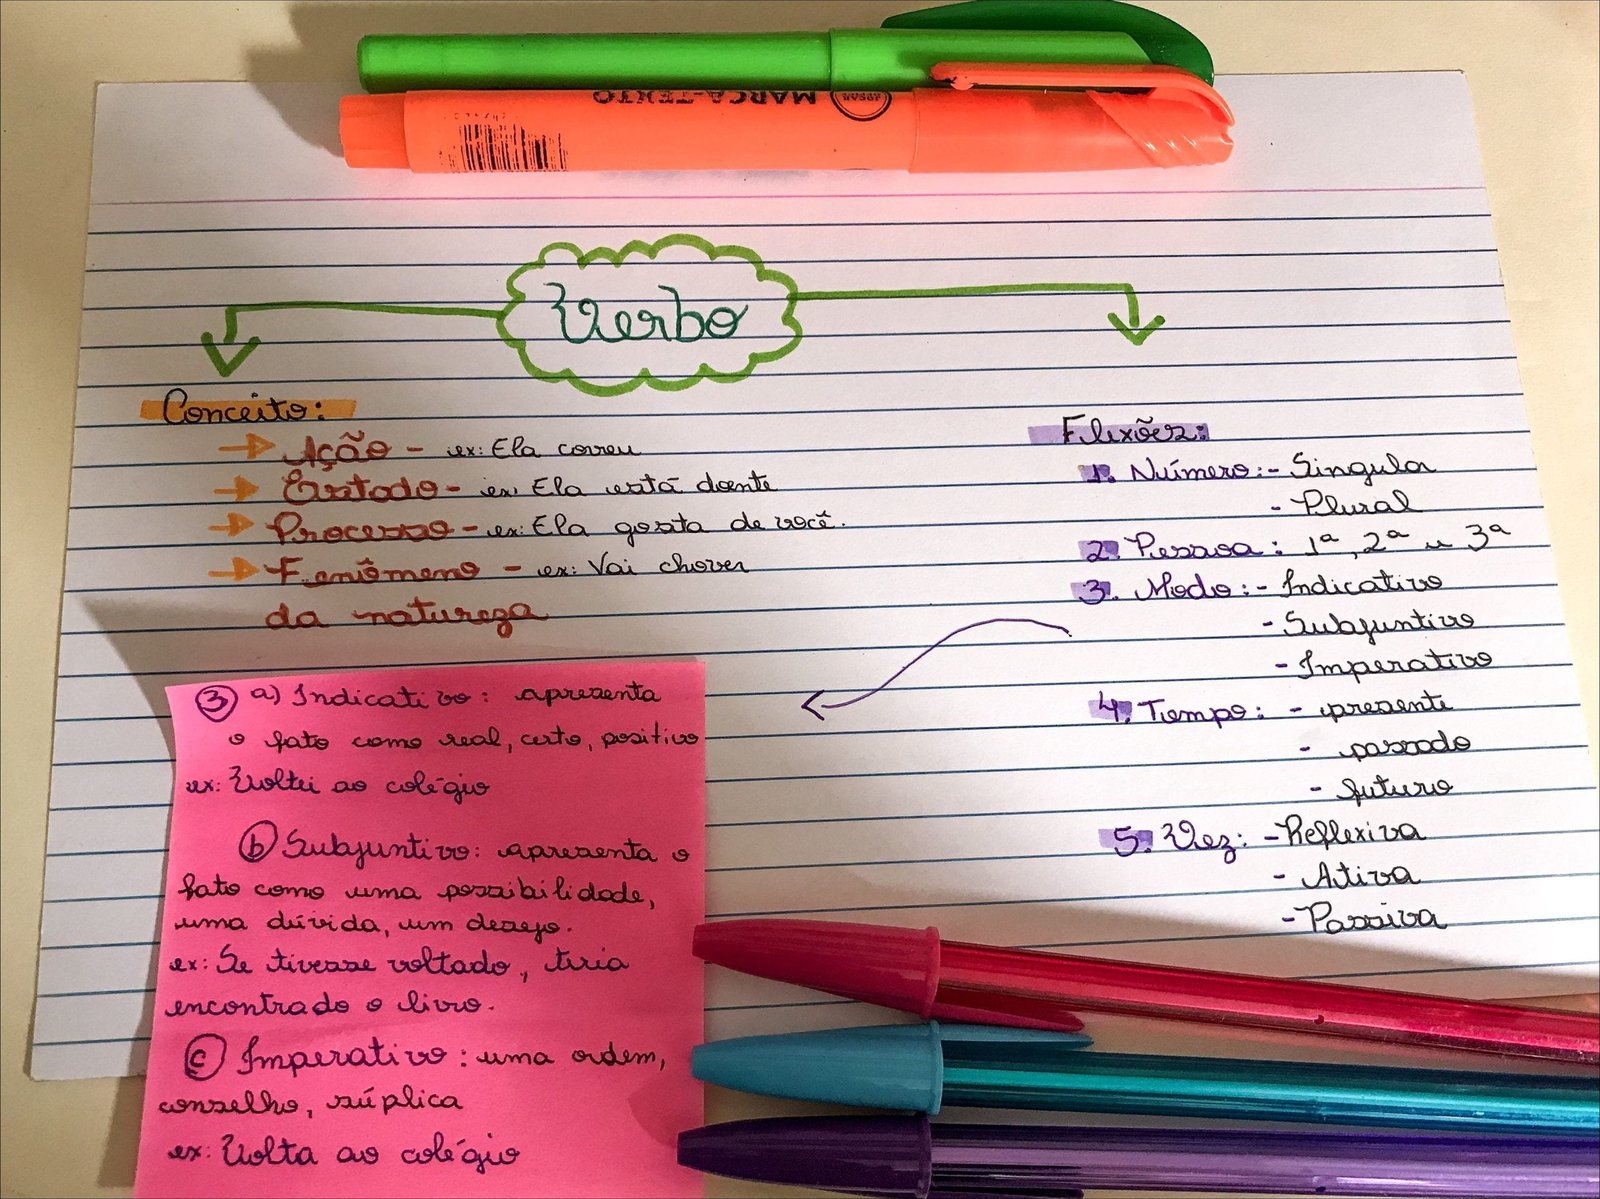 MARCA-TEXTO
Verbo
Conceito:
Ação - ex: Ela correu
Estado - ex: Ela está doente
Processo - ex: Ela gosta de você.
Fenômeno - ex: Vai chover
da natureza
Flexões:
1. Número: - Singula
- Plural
2. Pessoa: 1ª, 2ª e 3ª
3. Modo: - Indicativo
- Subjuntivo
- Imperativo
4. Tempo: - presente
- passado
- futuro
5. Voz: - Reflexiva
- Ativa
- Passiva
3 a) Indicativo: apresenta
o fato como real, certo, positivo
ex: Voltei ao colégio
b Subjuntivo: apresenta o
fato como uma possibilidade,
uma dúvida, um desejo.
ex: Se tivesse voltado, teria
encontrado o livro.
c Imperativo: uma ordem,
conselho, súplica
ex: Volta ao colégio